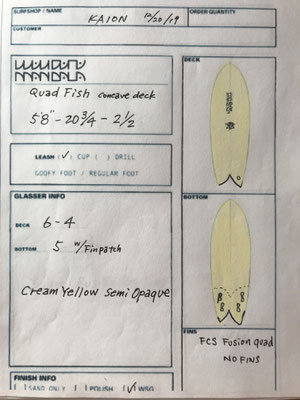 SURFSHOP / NAME
KAION 10/20/19
ORDER QUANTITY
CUSTOMER
MANDALA
Quad Fish concave deck
5'8" - 20 3/4 - 2 1/2
LEASH (✓) CUP ( ) DRILL
GOOFY FOOT / REGULAR FOOT
GLASSER INFO
DECK 6-4
BOTTOM 5 w/Finpatch
Cream Yellow Semi Opaque
FINISH INFO
[ ] SAND ONLY [ ] POLISH [✓] WSG
DECK
BOTTOM
FINS
FCS Fusion quad
NO FINS